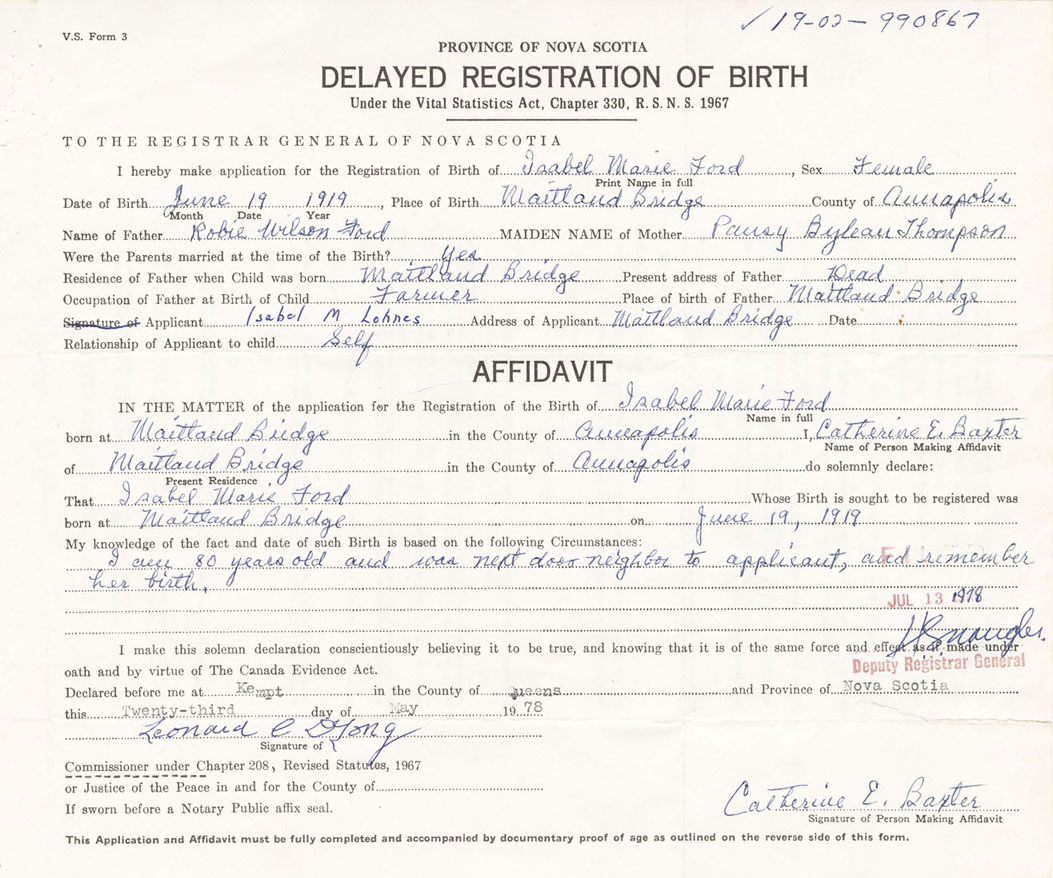 ✓ 19-02-990867
V.S. Form 3
PROVINCE OF NOVA SCOTIA
DELAYED REGISTRATION OF BIRTH
Under the Vital Statistics Act, Chapter 330, R. S. N. S. 1967
TO THE REGISTRAR GENERAL OF NOVA SCOTIA
I hereby make application for the Registration of Birth of Isabel Marie Ford, Sex Female
Print Name in full
Date of Birth June 19 1919, Place of Birth Maitland Bridge County of Annapolis
Month Date Year
Name of Father Robie Wilson Ford MAIDEN NAME of Mother Pansy Thompson
Were the Parents married at the time of the Birth? Yes
Residence of Father when Child was born Maitland Bridge Present address of Father Dead
Occupation of Father at Birth of Child Farmer Place of birth of Father Maitland Bridge
Signature of Applicant Isabel M Lohnes Address of Applicant Maitland Bridge Date
Relationship of Applicant to child Self
AFFIDAVIT
IN THE MATTER of the application for the Registration of the Birth of Isabel Marie Ford
Name in full
born at Maitland Bridge in the County of Annapolis I, Catherine E. Baxter
Name of Person Making Affidavit
of Maitland Bridge in the County of Annapolis do solemnly declare:
Present Residence
That Isabel Marie Ford Whose Birth is sought to be registered was
born at Maitland Bridge on June 19, 1919
My knowledge of the fact and date of such Birth is based on the following Circumstances:
I am 80 years old and was next door neighbor to applicant, and remember
her birth.
JUL 13 1978
I make this solemn declaration conscientiously believing it to be true, and knowing that it is of the same force and effect as if made under
Deputy Registrar General
oath and by virtue of The Canada Evidence Act.
Declared before me at Kempt in the County of Queens and Province of Nova Scotia
this Twenty-third day of May 1978
Leonard C
Signature of
Commissioner under Chapter 208, Revised Statutes, 1967
or Justice of the Peace in and for the County of
Catherine E. Baxter
If sworn before a Notary Public affix seal.
Signature of Person Making Affidavit
This Application and Affidavit must be fully completed and accompanied by documentary proof of age as outlined on the reverse side of this form.